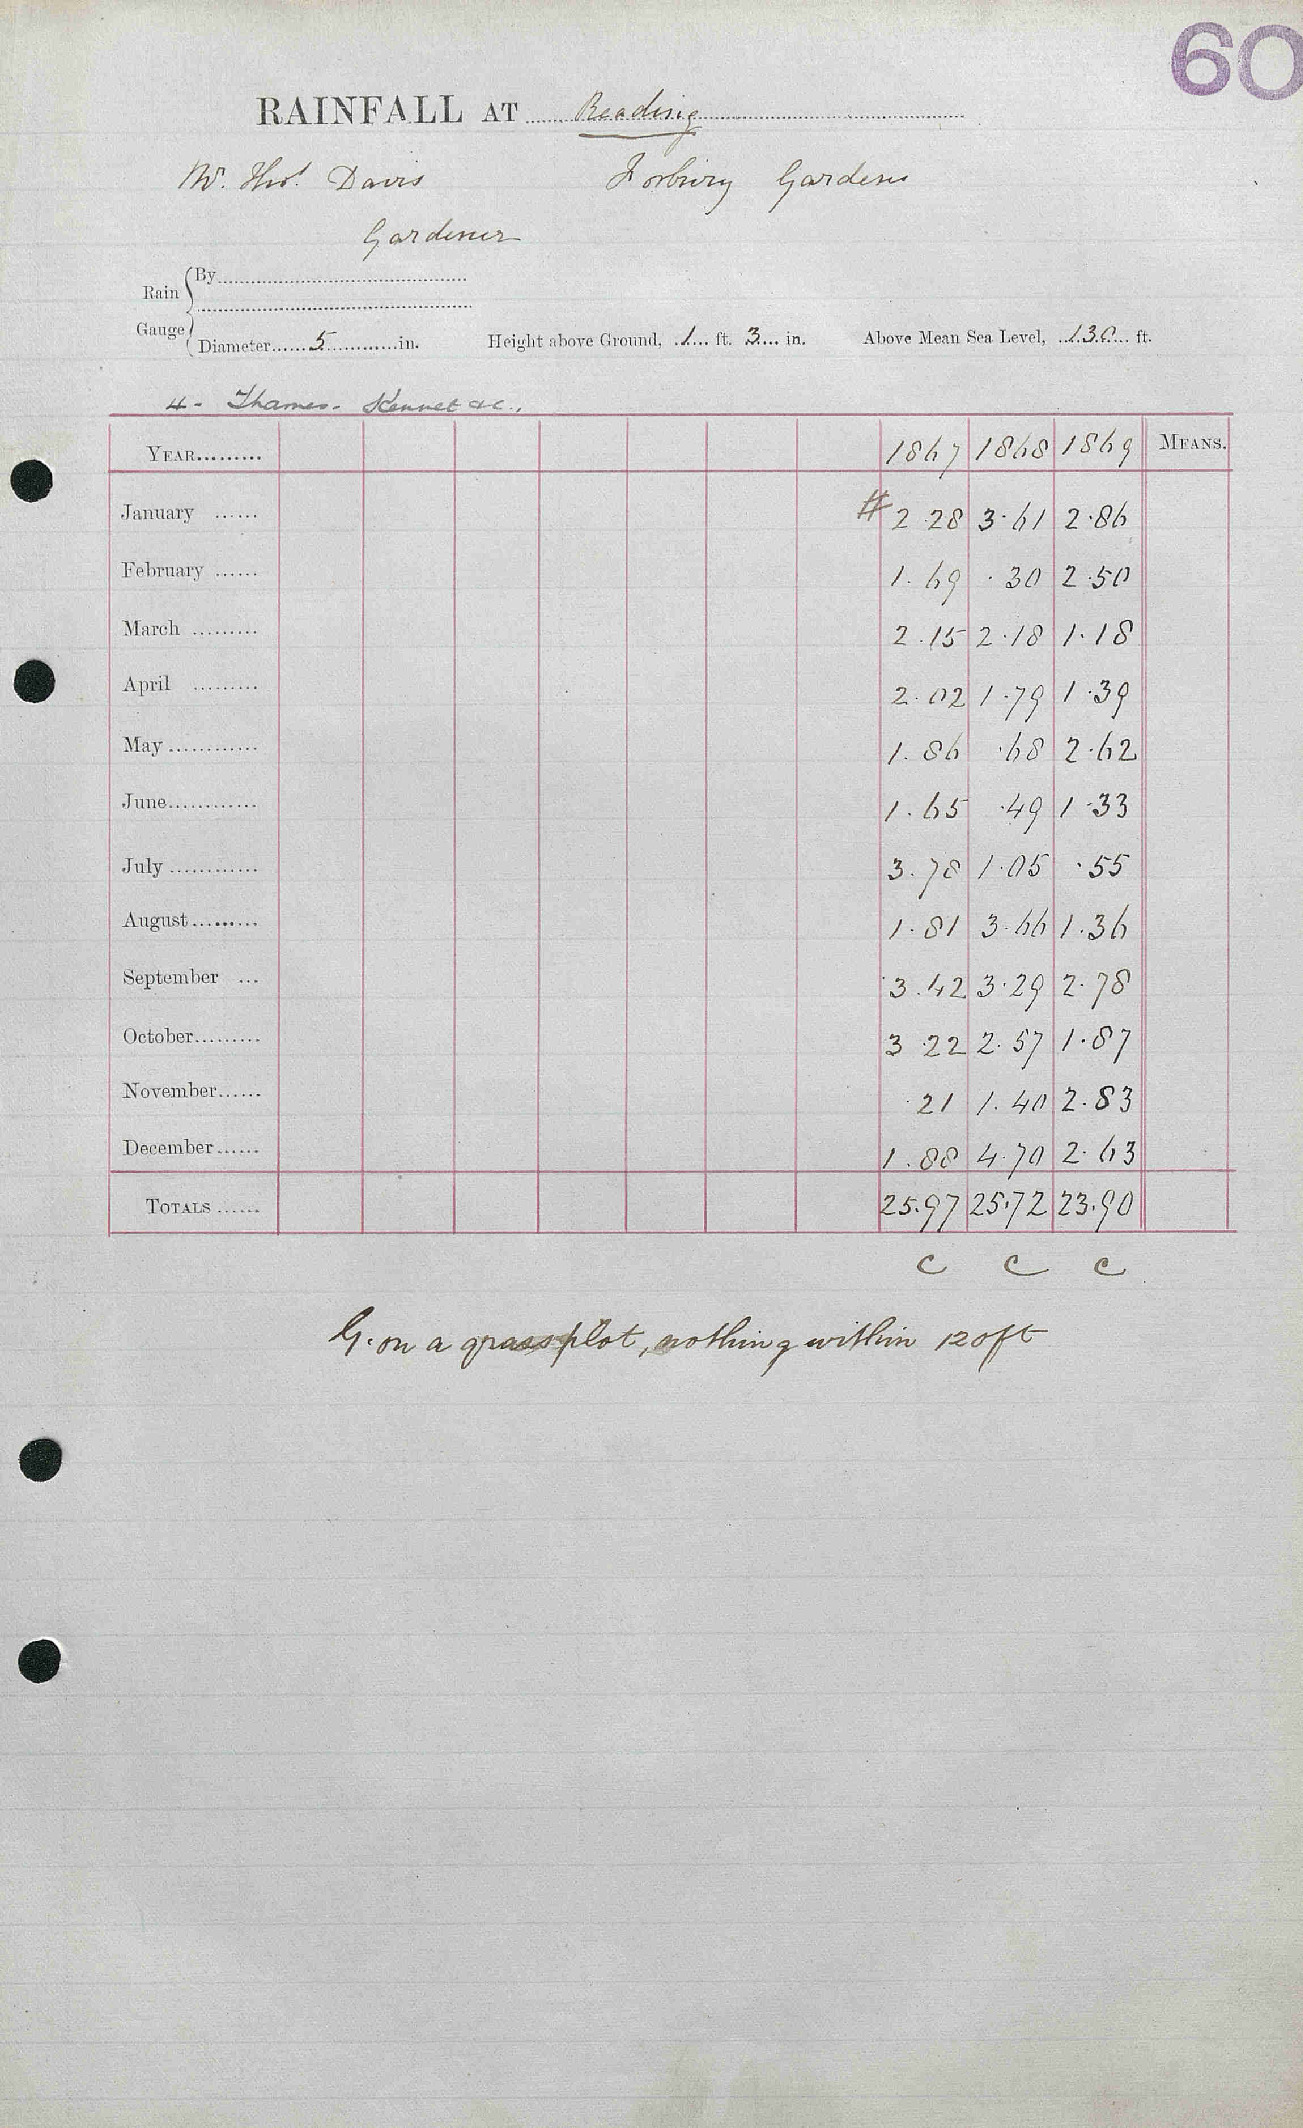 60
RAINFALL AT Reading
Mr. Thos. Davis Forbury Gardens
Gardener
Rain Gauge
By
Diameter 5 in. Height above Ground, 1 ft. 3 in. Above Mean Sea Level, 130 ft.
4 - Thames. Kennet &c.
YEAR 1867 1868 1869 MEANS.
January # 2.28 3.61 2.86
February 1.69 .30 2.50
March 2.15 2.18 1.18
April 2.02 1.79 1.39
May 1.86 .68 2.62
June 1.65 .49 1.33
July 3.78 1.05 .55
August 1.81 3.66 1.36
September 3.42 3.29 2.78
October 3.22 2.57 1.87
November .21 1.40 2.83
December 1.88 4.70 2.63
TOTALS 25.97 25.72 23.90
C C C
G. on a grass plot, nothing within 120 ft